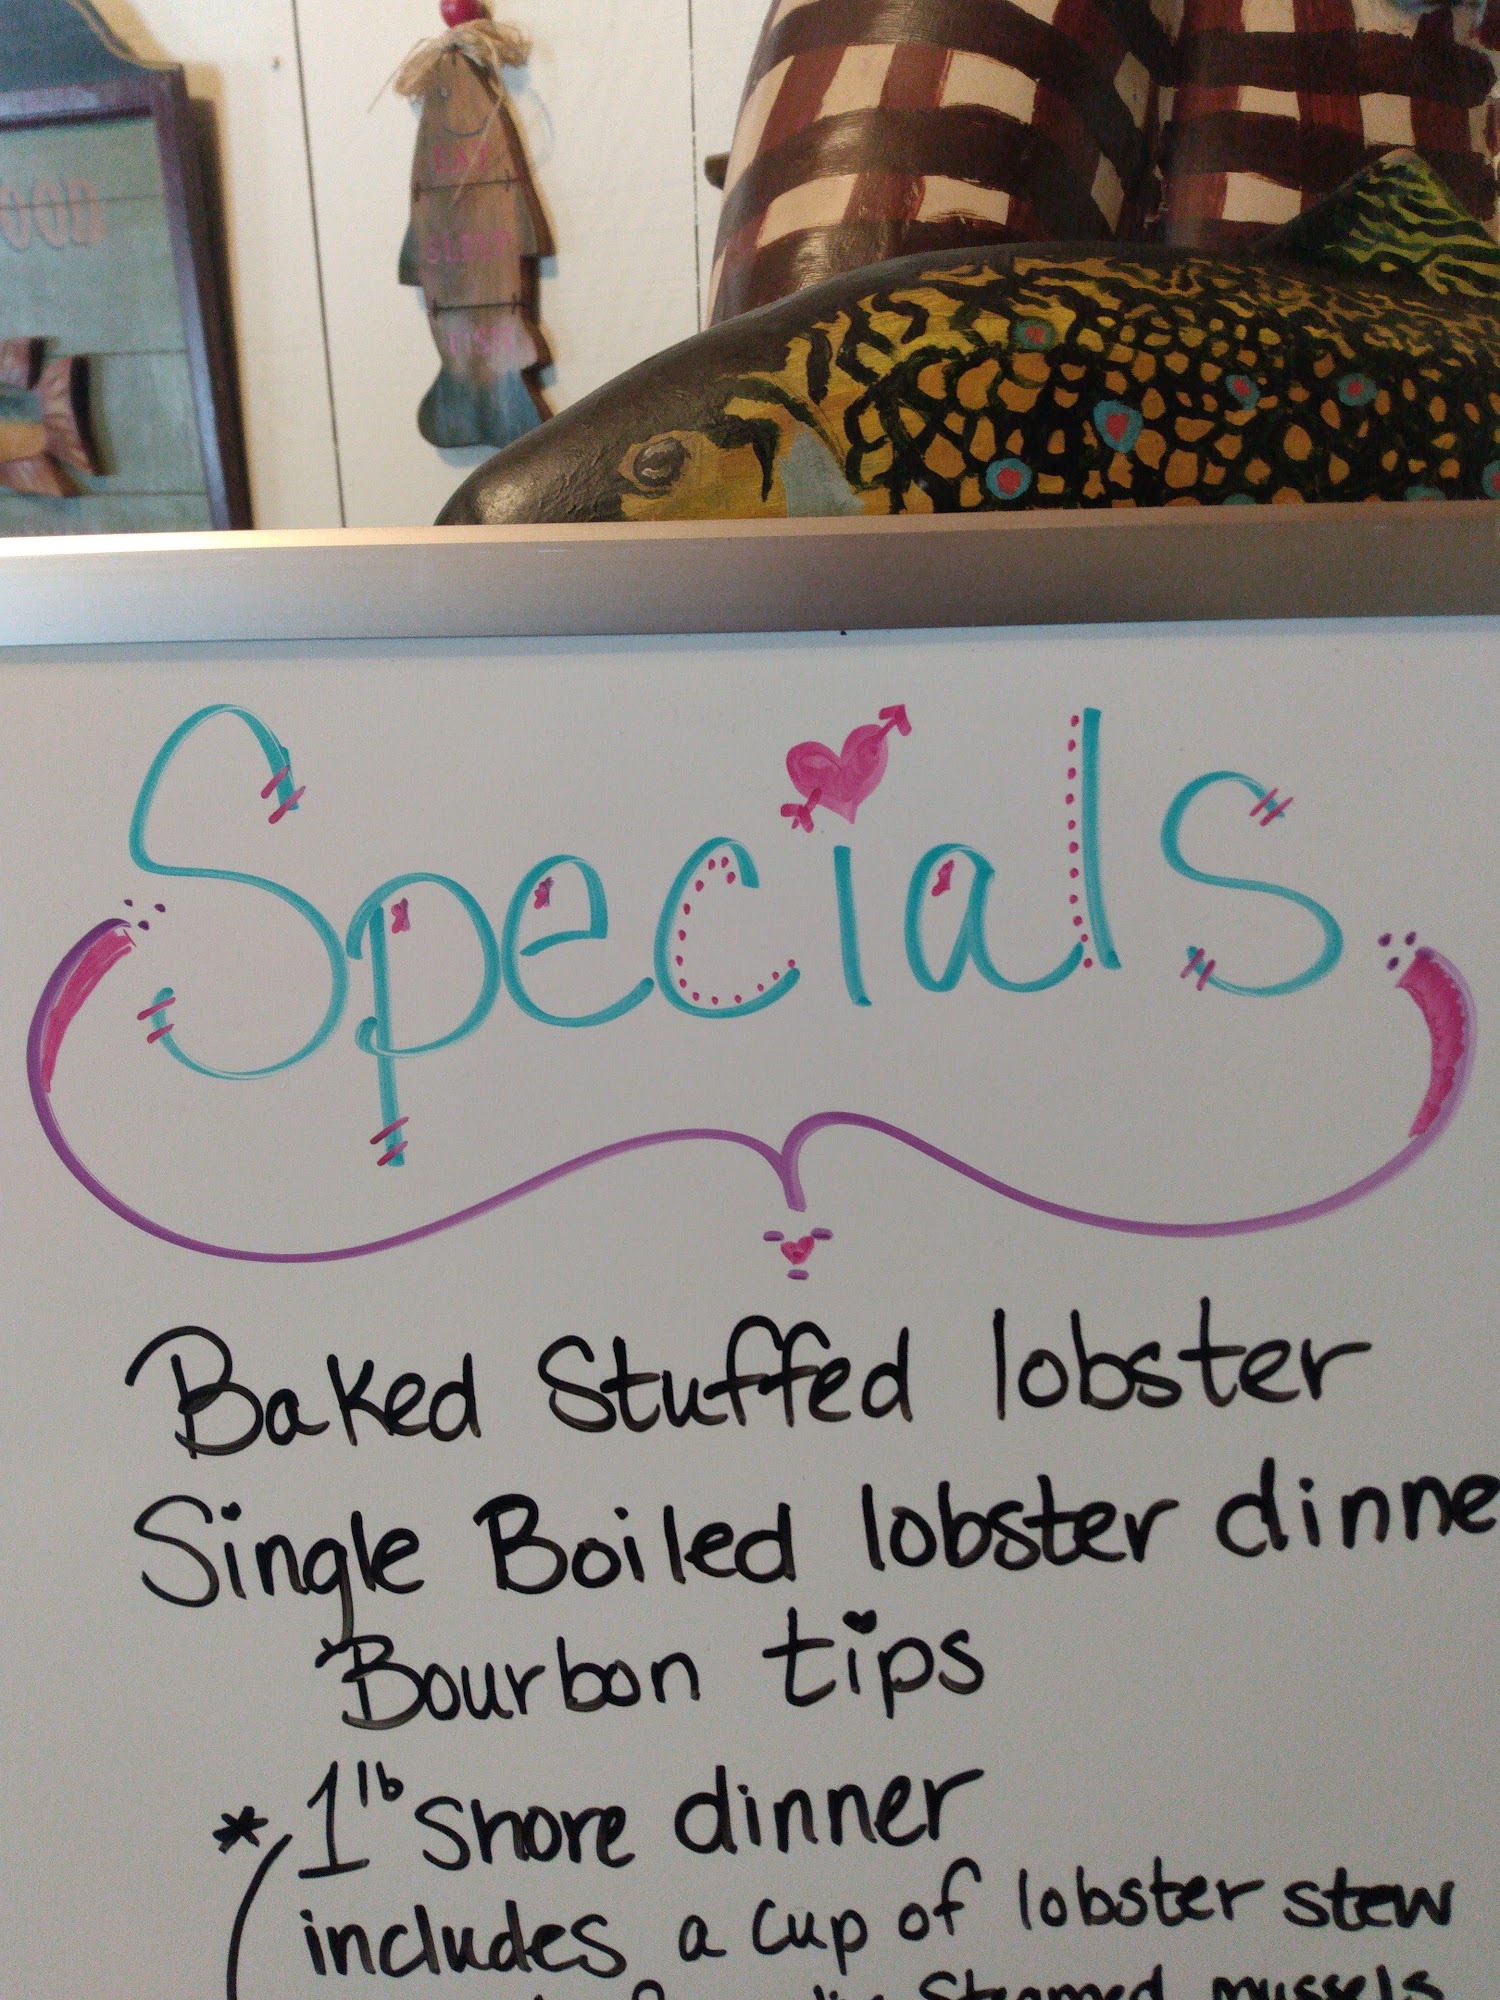 EAT
SLEEP
FISH
Specials
Baked Stuffed lobster
Single Boiled lobster dinne
Bourbon tips
* 1 lb Shore dinner
includes a cup of lobster stew
Steamed mussels